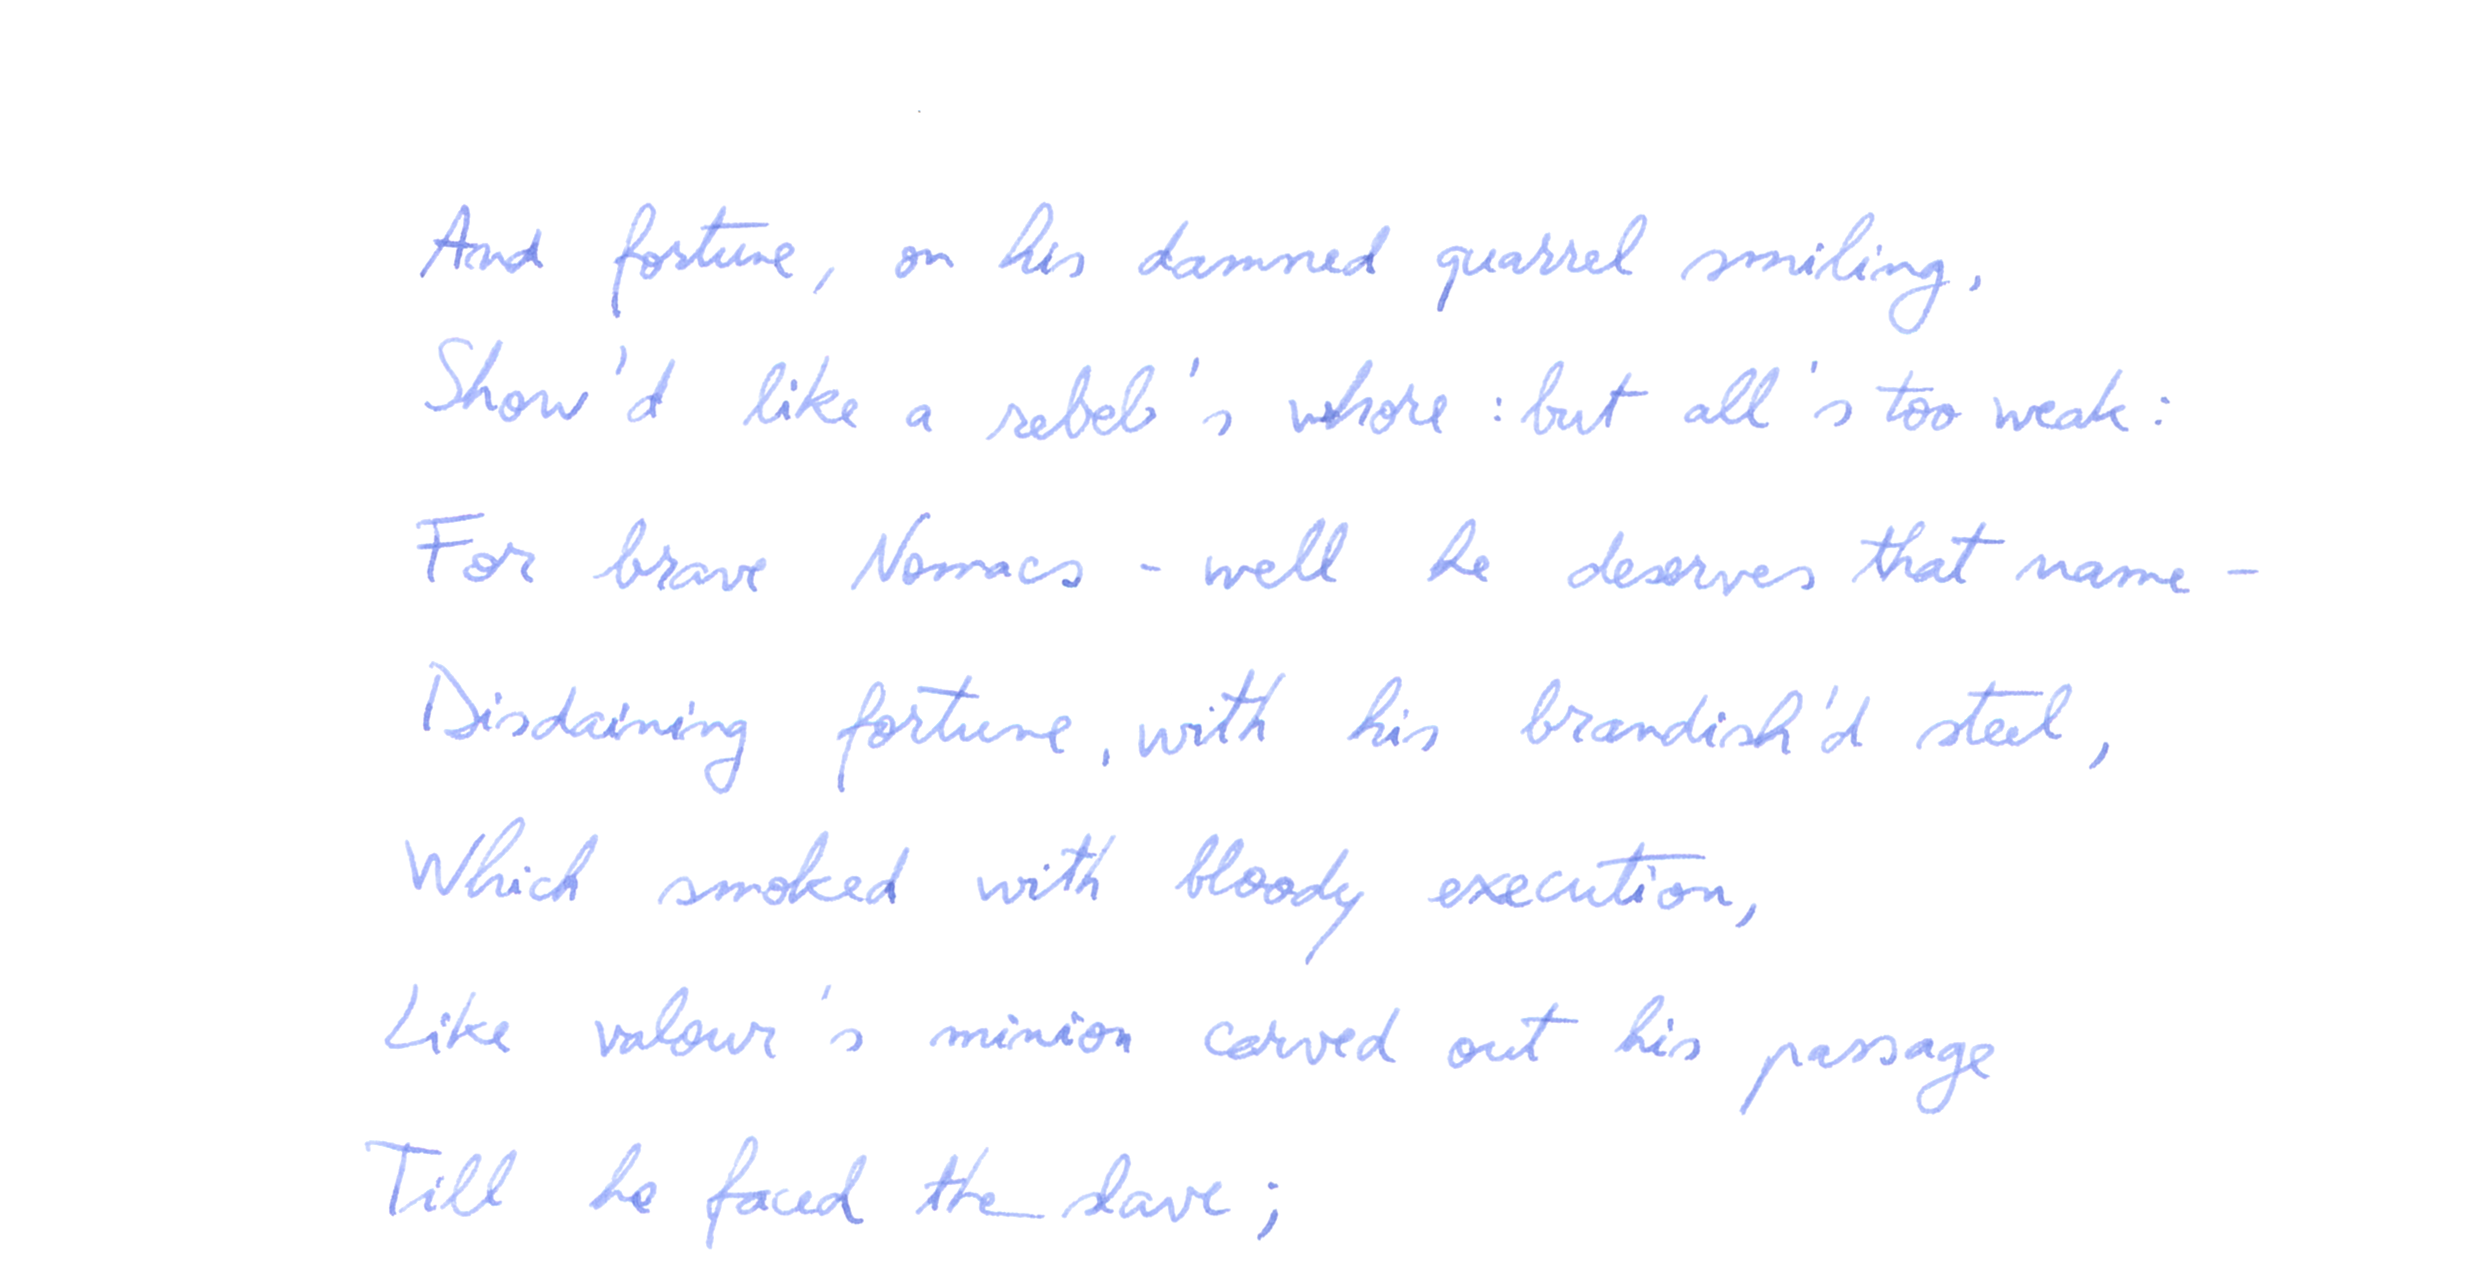 And fortune, on his damned quarrel smiling,
Show'd like a rebel's whore : but all's too weak :
For brave Nomacs - well he deserves that name -
Disdaining fortune, with his brandish'd steel,
Which smoked with bloody execution,
Like valour's minion carved out his passage
Till he faced the slave ;